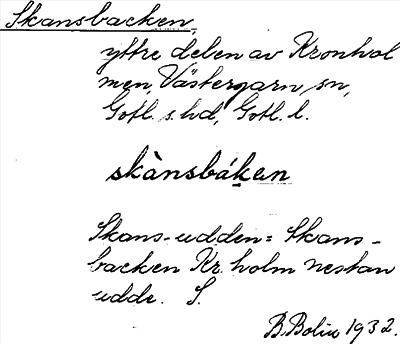 Skansbacken,
yttre delen av Kronhol
men, Västergarn sn,
Gotl. s. hd, Gotl. l.
skànsbáḵen
Skans-udden = Skans-
backen Kr. holm nestan
udde. S.
B. Bolin 1932.